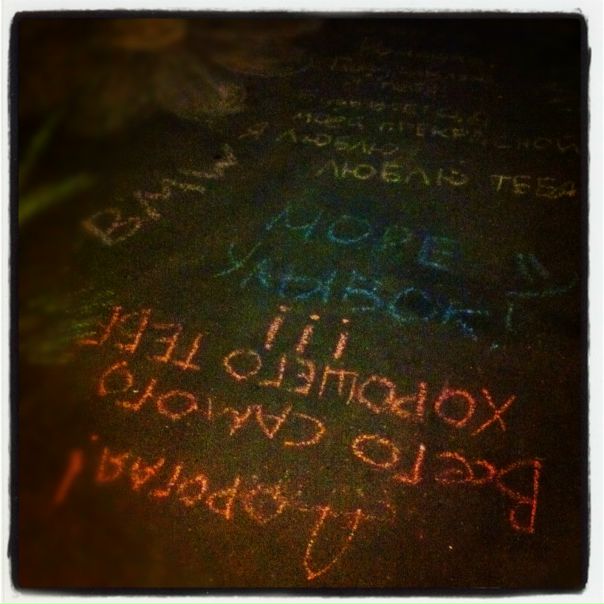 МОЕЙ ПРЕКРАСНОЙ
Я ЛЮБЛЮ
ЛЮБЛЮ ТЕБЯ
BMW
МОРЕ
УЛЫБОК!
Дорогая!
Всего самого
хорошего тебе
!!!